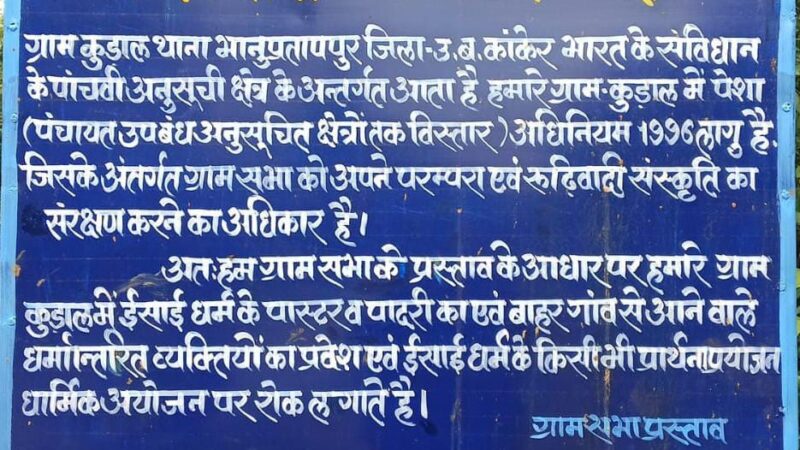 ग्राम कुडाल थाना भानुप्रतापपुर जिला-उ.ब.कांकेर भारत के संविधान
के पांचवी अनुसूची क्षेत्र के अन्तर्गत आता है हमारे ग्राम-कुडाल में पेशा
(पंचायत उपबंध अनुसूचित क्षेत्रों तक विस्तार) अधिनियम 1996 लागु है.
जिसके अंतर्गत ग्राम सभा को अपने परम्परा एवं रूढ़िवादी संस्कृति का
संरक्षण करने का अधिकार है।
अतः हम ग्राम सभा के प्रस्ताव के आधार पर हमारे ग्राम
कुडाल में ईसाई धर्म के पास्टर व पादरी का एवं बाहर गांव से आने वाले
धर्मान्तरित व्यक्तियों का प्रवेश एवं ईसाई धर्म के किसी भी प्रार्थना प्रयोजन
धार्मिक अयोजन पर रोक लगाते है।
ग्राम सभा प्रस्ताव